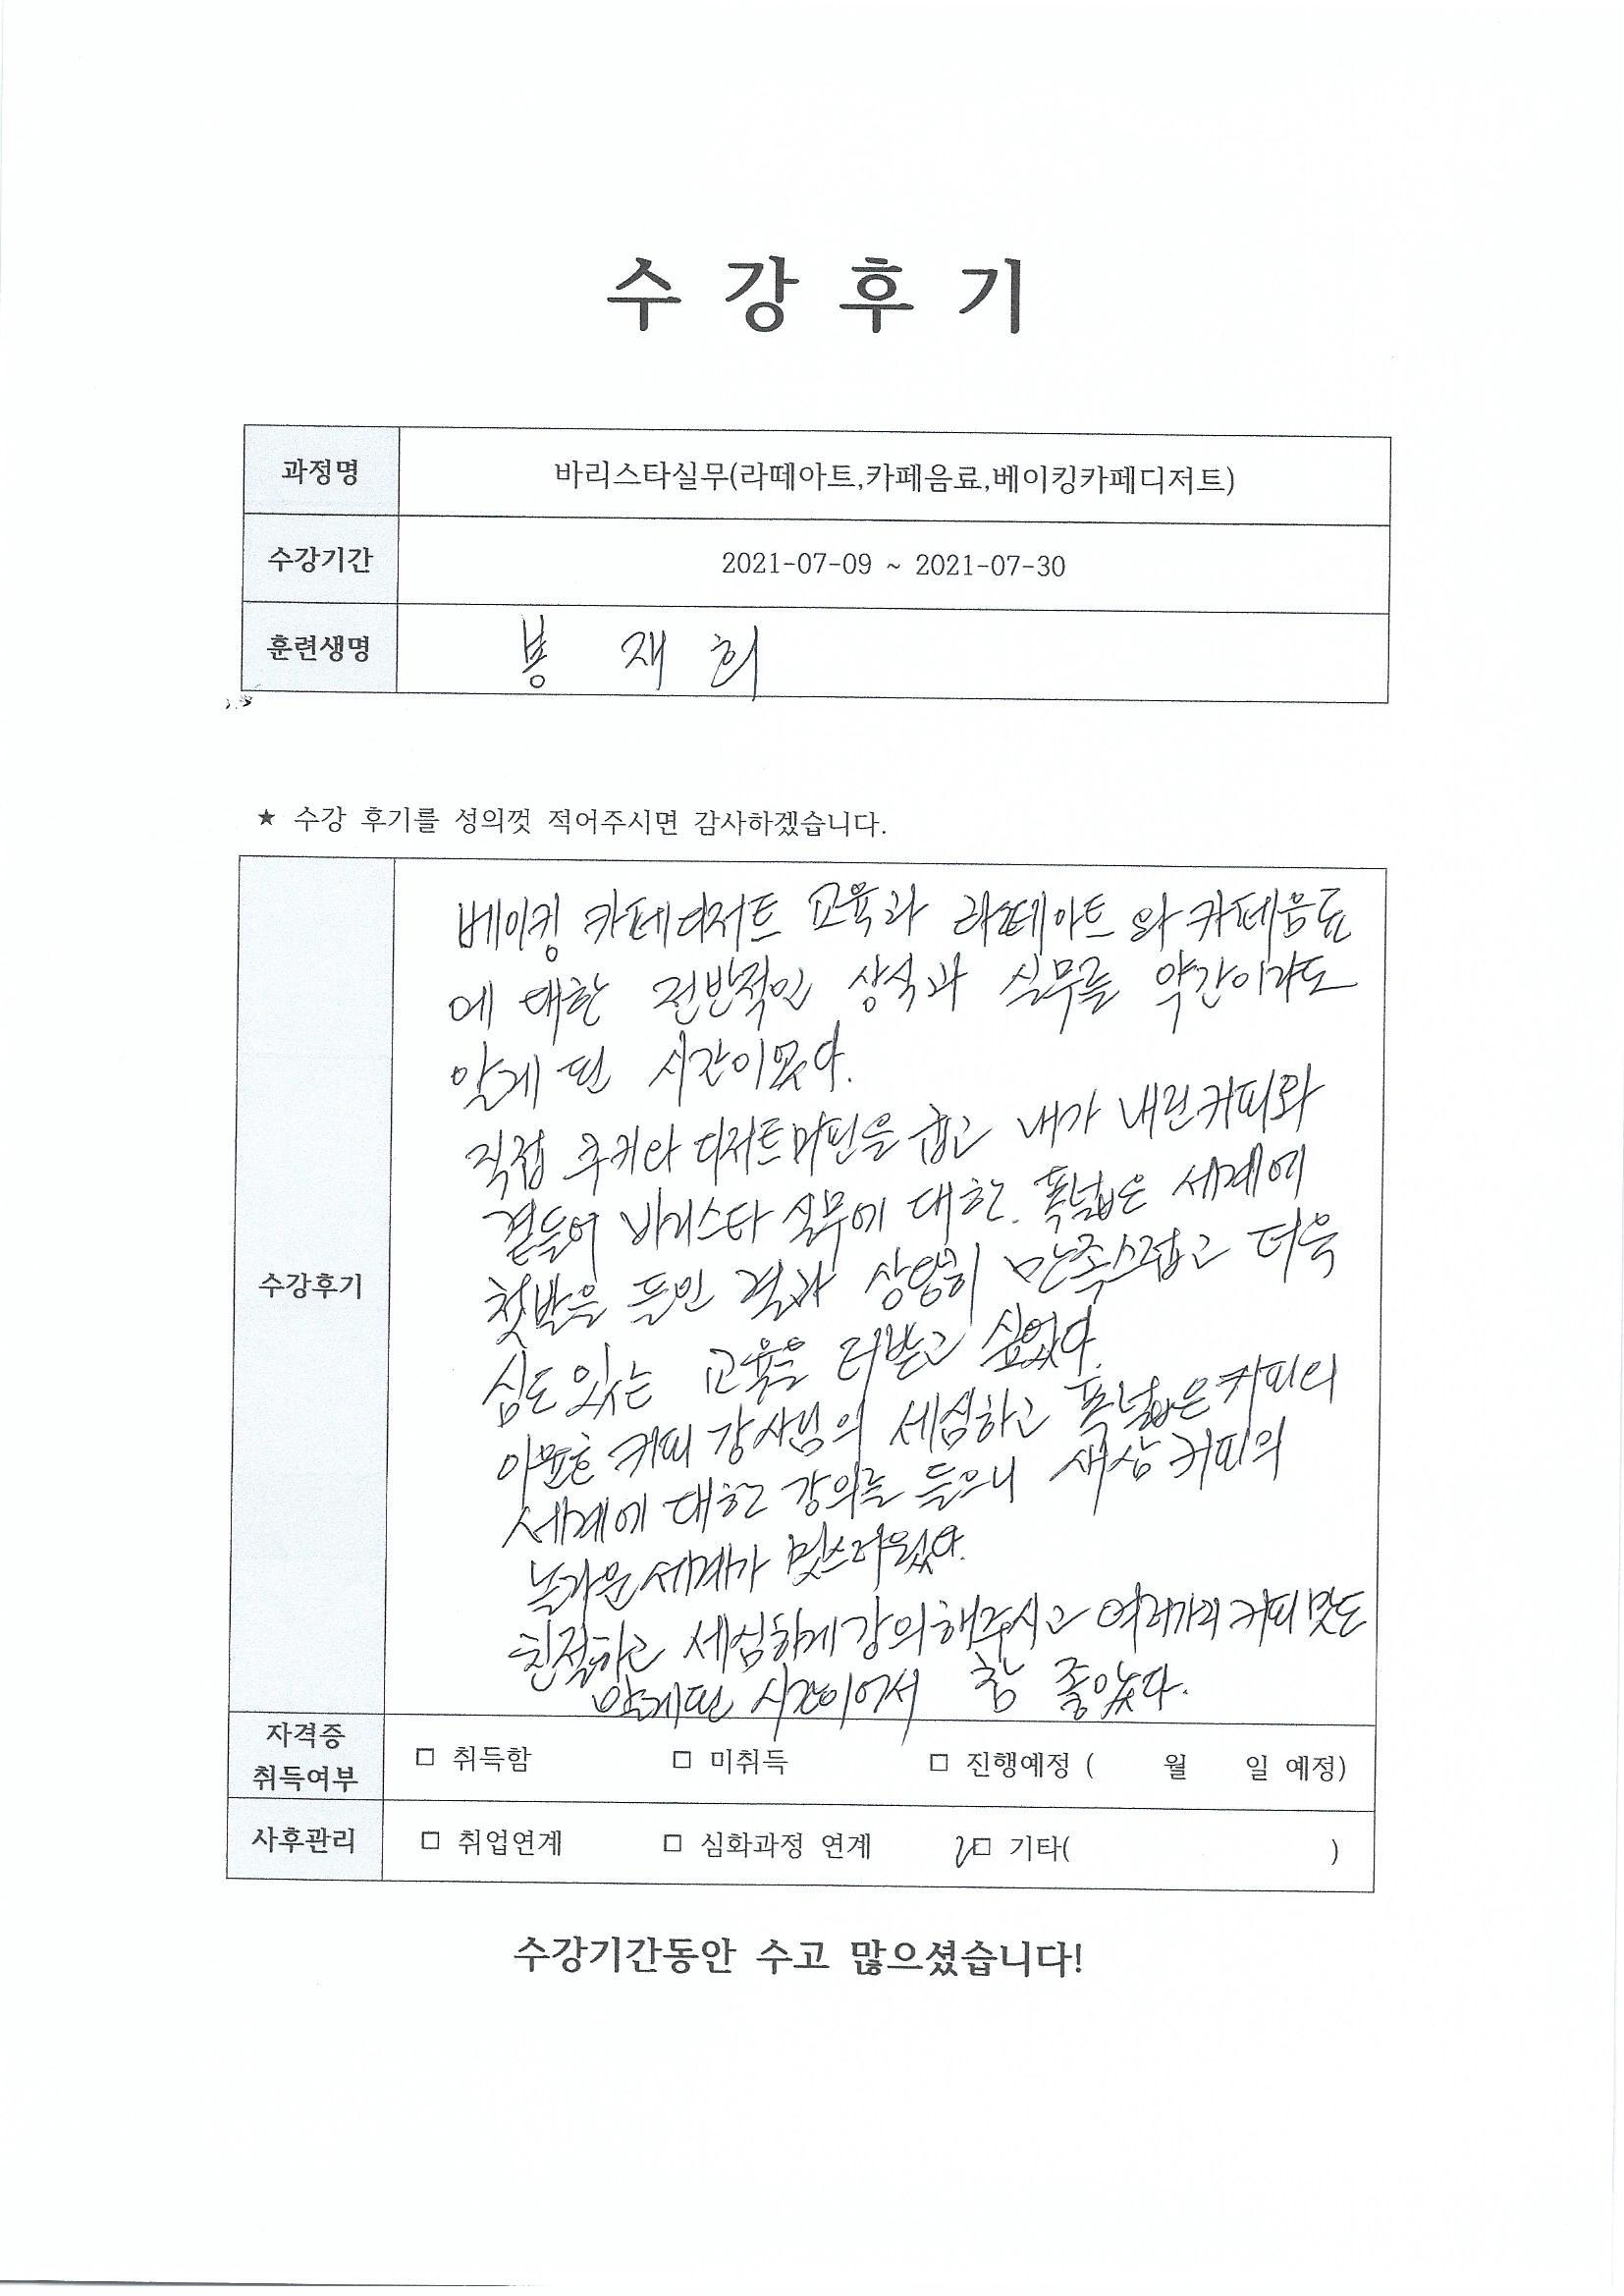 수 강 후 기
과정명 바리스타실무(라떼아트,카페음료,베이킹카페디저트)
수강기간 2021-07-09 ~ 2021-07-30
훈련생명 봉 재 희
★ 수강 후기를 성의껏 적어주시면 감사하겠습니다.
수강후기
베이킹 카페디저트 교육과 라떼아트 와 카페음료
에 대한 전반적인 상식과 실무를 약간이라도
알게 된 시간이였다.
직접 쿠키와 디저트머핀을 굽고 내가 내린커피와
곁들어 바리스타 실무에 대한. 폭넓은 세계에
첫발을 들인 결과 상당히 만족스럽고 더욱
심도있는 교육을 더받고 싶었다.
커피 강사님의 세심하고 폭넓은커피의
세계에 대한 강의를 들으니 새삼 커피의
놀라운세계가 멋스러웠다.
친절하고 세심하게강의해주시고 여러가지 커피맛도
알게된 시간이어서 참 좋았다.
자격증
취득여부 □ 취득함 □ 미취득 □ 진행예정 ( 월 일 예정)
사후관리 □ 취업연계 □ 심화과정 연계 □ 기타( )
수강기간동안 수고 많으셨습니다!